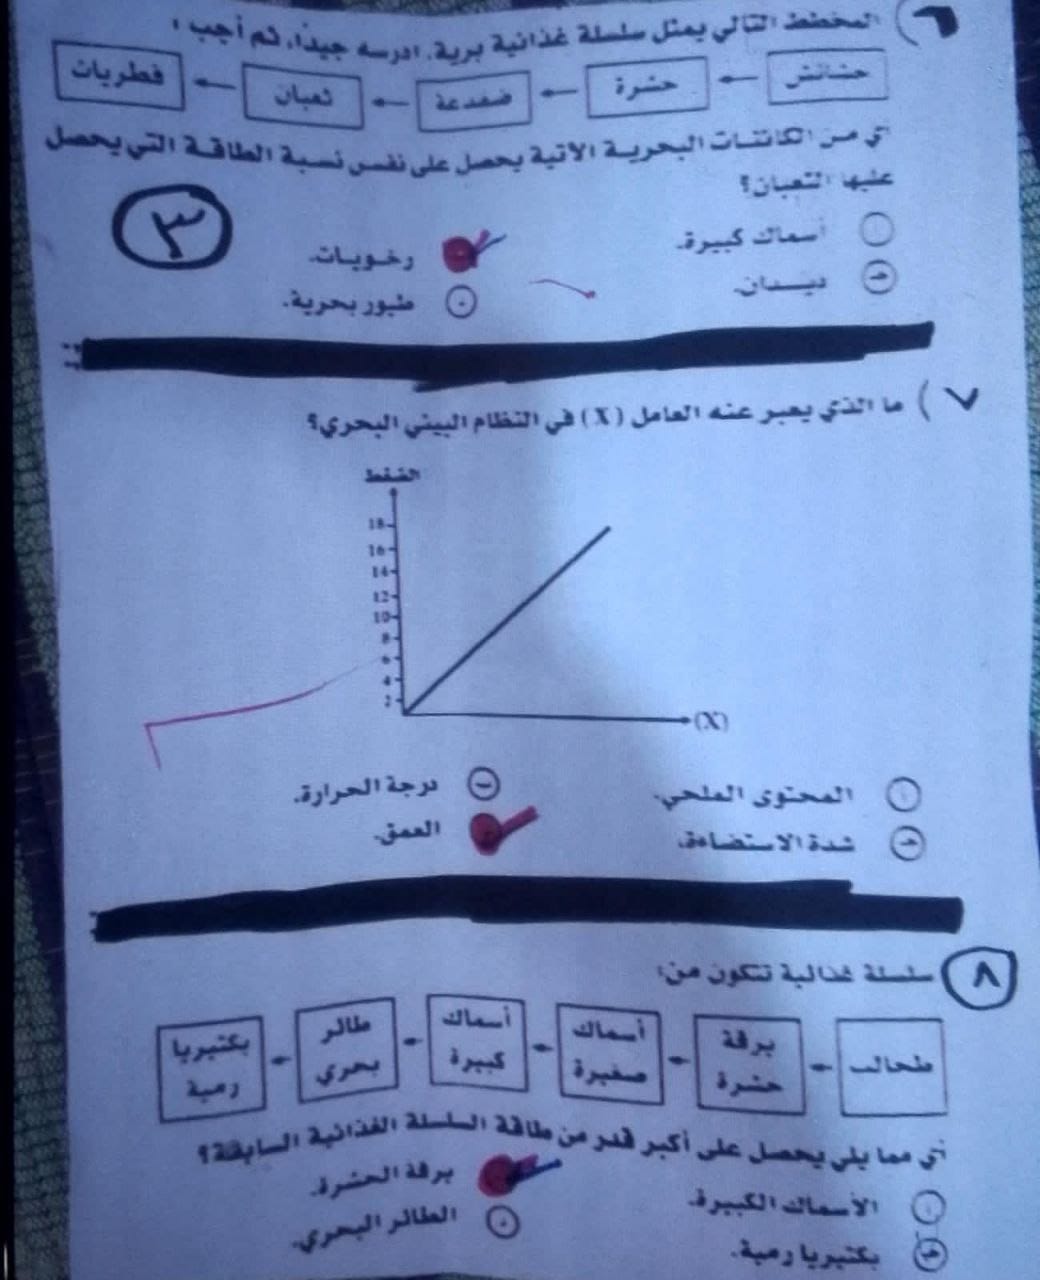 ٦) المخطط التالي يمثل سلسلة غذائية برية، ادرسه جيداً، ثم أجب :
حشائش ← حشرة ← ضفدعة ← ثعبان ← فطريات
أي من الكائنات البحرية الآتية يحصل على نفس نسبة الطاقة التي يحصل
عليها الثعبان؟
أ أسماك كبيرة.
رخويات.
ج ديدان.
د طيور بحرية.
٣
٧) ما الذي يعبر عنه العامل (X) في النظام البيئي البحري؟
الضغط
18
16
14
12
10
8
6
4
2
(X)
أ المحتوى الملحي.
ب درجة الحرارة.
ج شدة الاستضاءة.
العمق.
٨ سلسلة غذائية تتكون من:
طحالب ← يرقة حشرة ← أسماك صغيرة ← أسماك كبيرة ← طائر بحري ← بكتيريا رمية
أي مما يلي يحصل على أكبر قدر من طاقة السلسلة الغذائية السابقة؟
أ الأسماك الكبيرة.
يرقة الحشرة.
ج بكتيريا رمية.
د الطائر البحري.